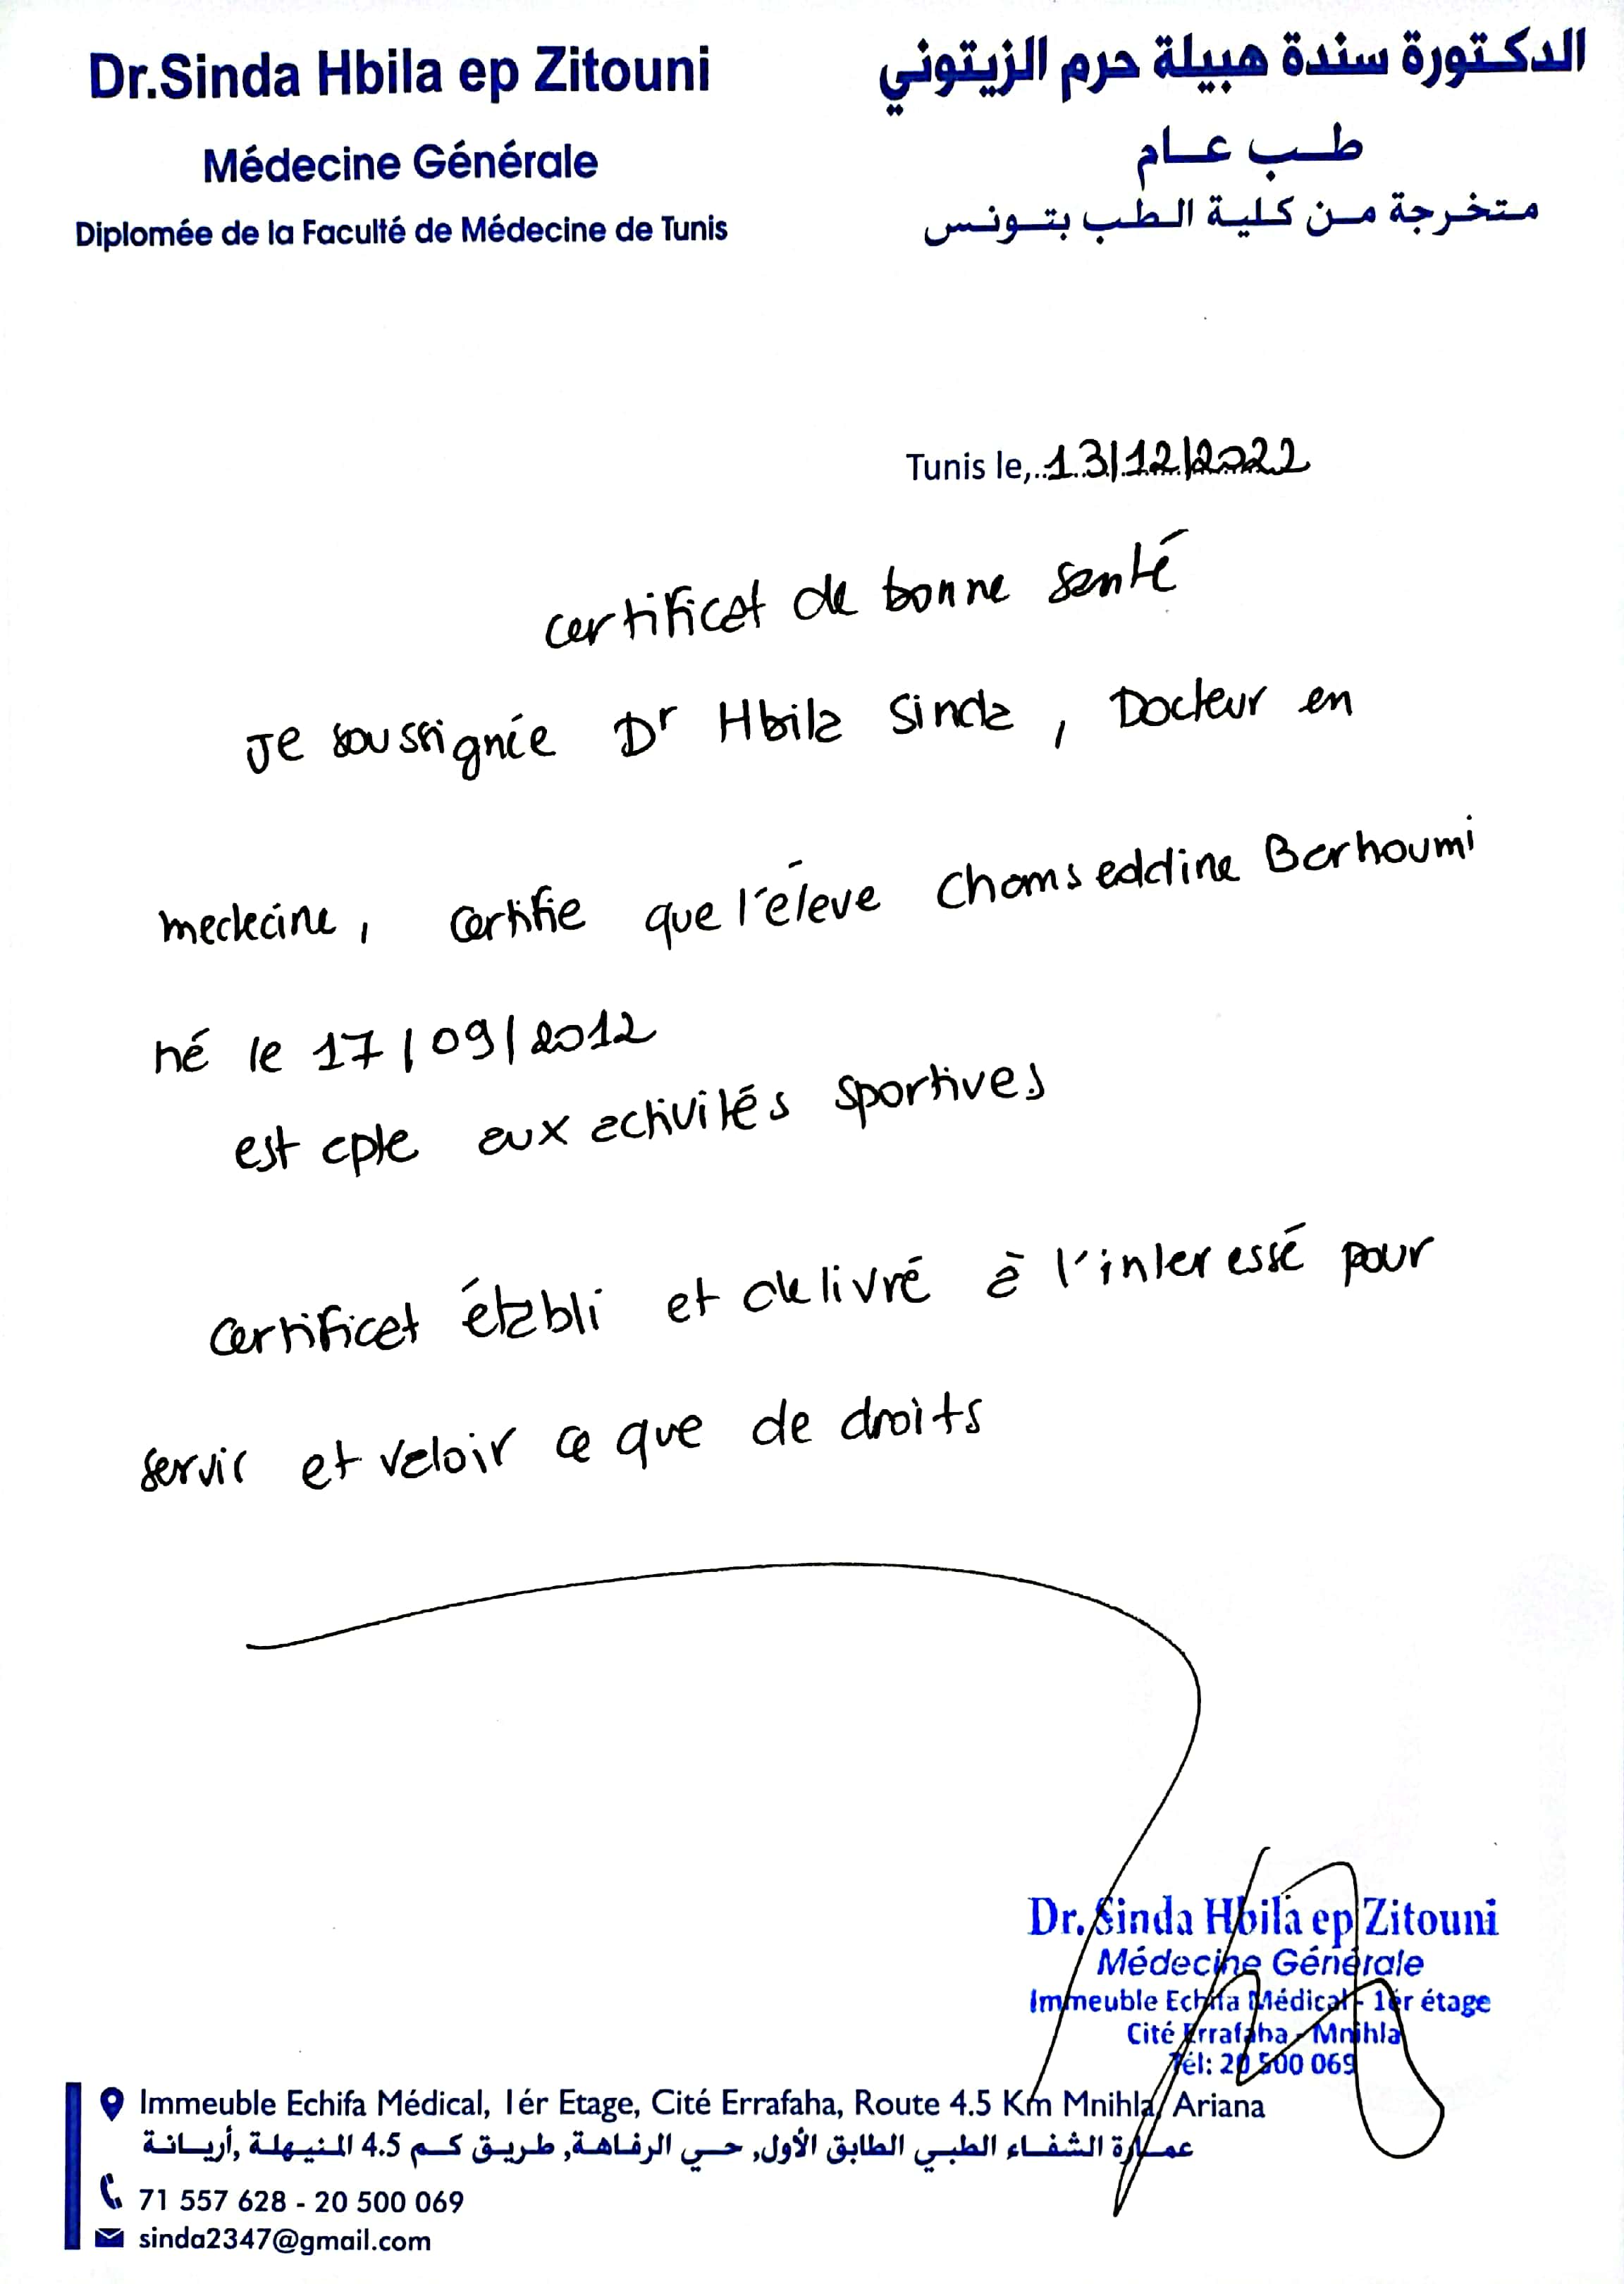 Dr.Sinda Hbila ep Zitouni
Médecine Générale
Diplomée de la Faculté de Médecine de Tunis
الدكتورة سندة هبيلة حرم الزيتوني
طب عام
متخرجة من كلية الطب بتونس
Tunis le, 13/12/2022
certificat de bonne santé
Je soussignée Dr Hbila Sinda, Docteur en
medecine, certifie que l'éleve Chamseddine Barhoumi
né le 17/09/2012
est apte aux activités sportives
certificat établi et delivré à l'interessé pour
servir et valoir ce que de droits
Dr. Sinda Hbila ep Zitouni
Médecine Générale
Immeuble Echifa Médical - 1ér étage
Cité Errafaha - Mnihla
Tél: 20 500 069
Immeuble Echifa Médical, 1ér Etage, Cité Errafaha, Route 4.5 Km Mnihla, Ariana
عمارة الشفاء الطبي الطابق الأول, حي الرفاهة, طريق كم 4.5 المنيهلة ,أريانة
71 557 628 - 20 500 069
sinda2347@gmail.com